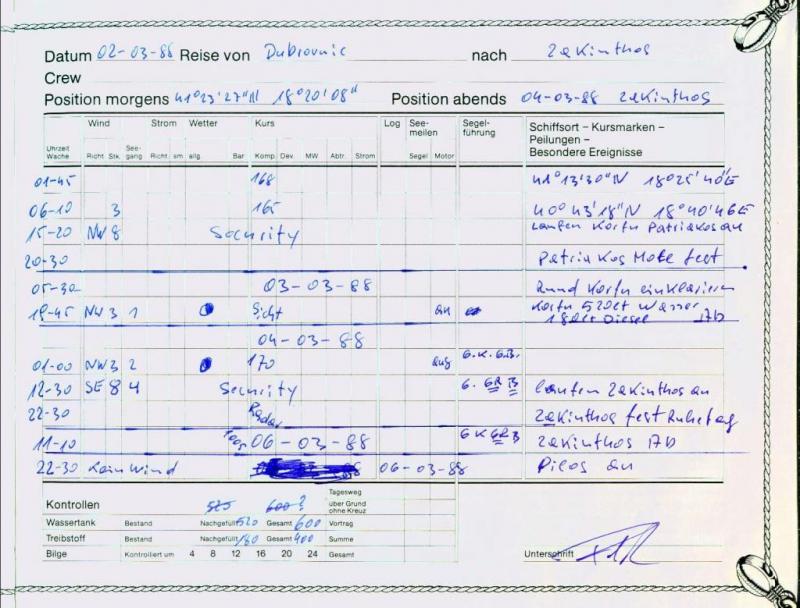 Datum 02-03-88 Reise von Dubrovnic nach Zakinthos
Crew
Position morgens 41°23'27"N 18°20'08" Position abends 04-03-88 Zakinthos
Wind Strom Wetter Kurs Log See-meilen Segel-führung Schiffsort – Kursmarken – Peilungen – Besondere Ereignisse
Uhrzeit Wache Richt. Stk. See-gang Richt. sm allg. Bar Komp. Dev. MW Abtr. Strom Segel Motor
01-45 168 41°13'30"N 18°25'40"E
06-10 3 165 40°43'18"N 18°40'46E
15-20 NW 8 Security Laufen Korfu Patriakos an
20-30 Patriakos Mole fest
05-30 03-03-88 Rund Korfu einklarieren
19-45 NW 3 1 Sicht an Korfu 520lt Wasser
180lt Diesel Ab
04-03-88
01-00 NW 3 2 170 aus G.K.G.B.
12-30 SE 8 4 Security G. GR B laufen Zakinthos an
22-30 Radar Zakinthos fest Ruhetag
11-10 06-03-88 G K GR B Zakinthos Ab
22-30 Kein Wind 06-03-88 Pilos an
Kontrollen 525 600? Tagesweg über Grund ohne Kreuz
Wassertank Bestand Nachgefüllt 520 Gesamt 600 Vortrag
Treibstoff Bestand Nachgefüllt 180 Gesamt 400 Summe
Bilge Kontrolliert um 4 8 12 16 20 24 Gesamt
Unterschrift